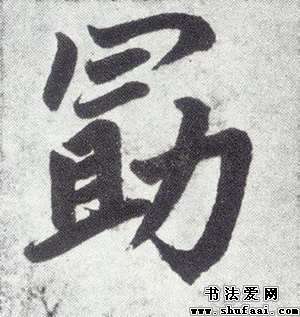 勖
书法爱网
www.shufaai.com